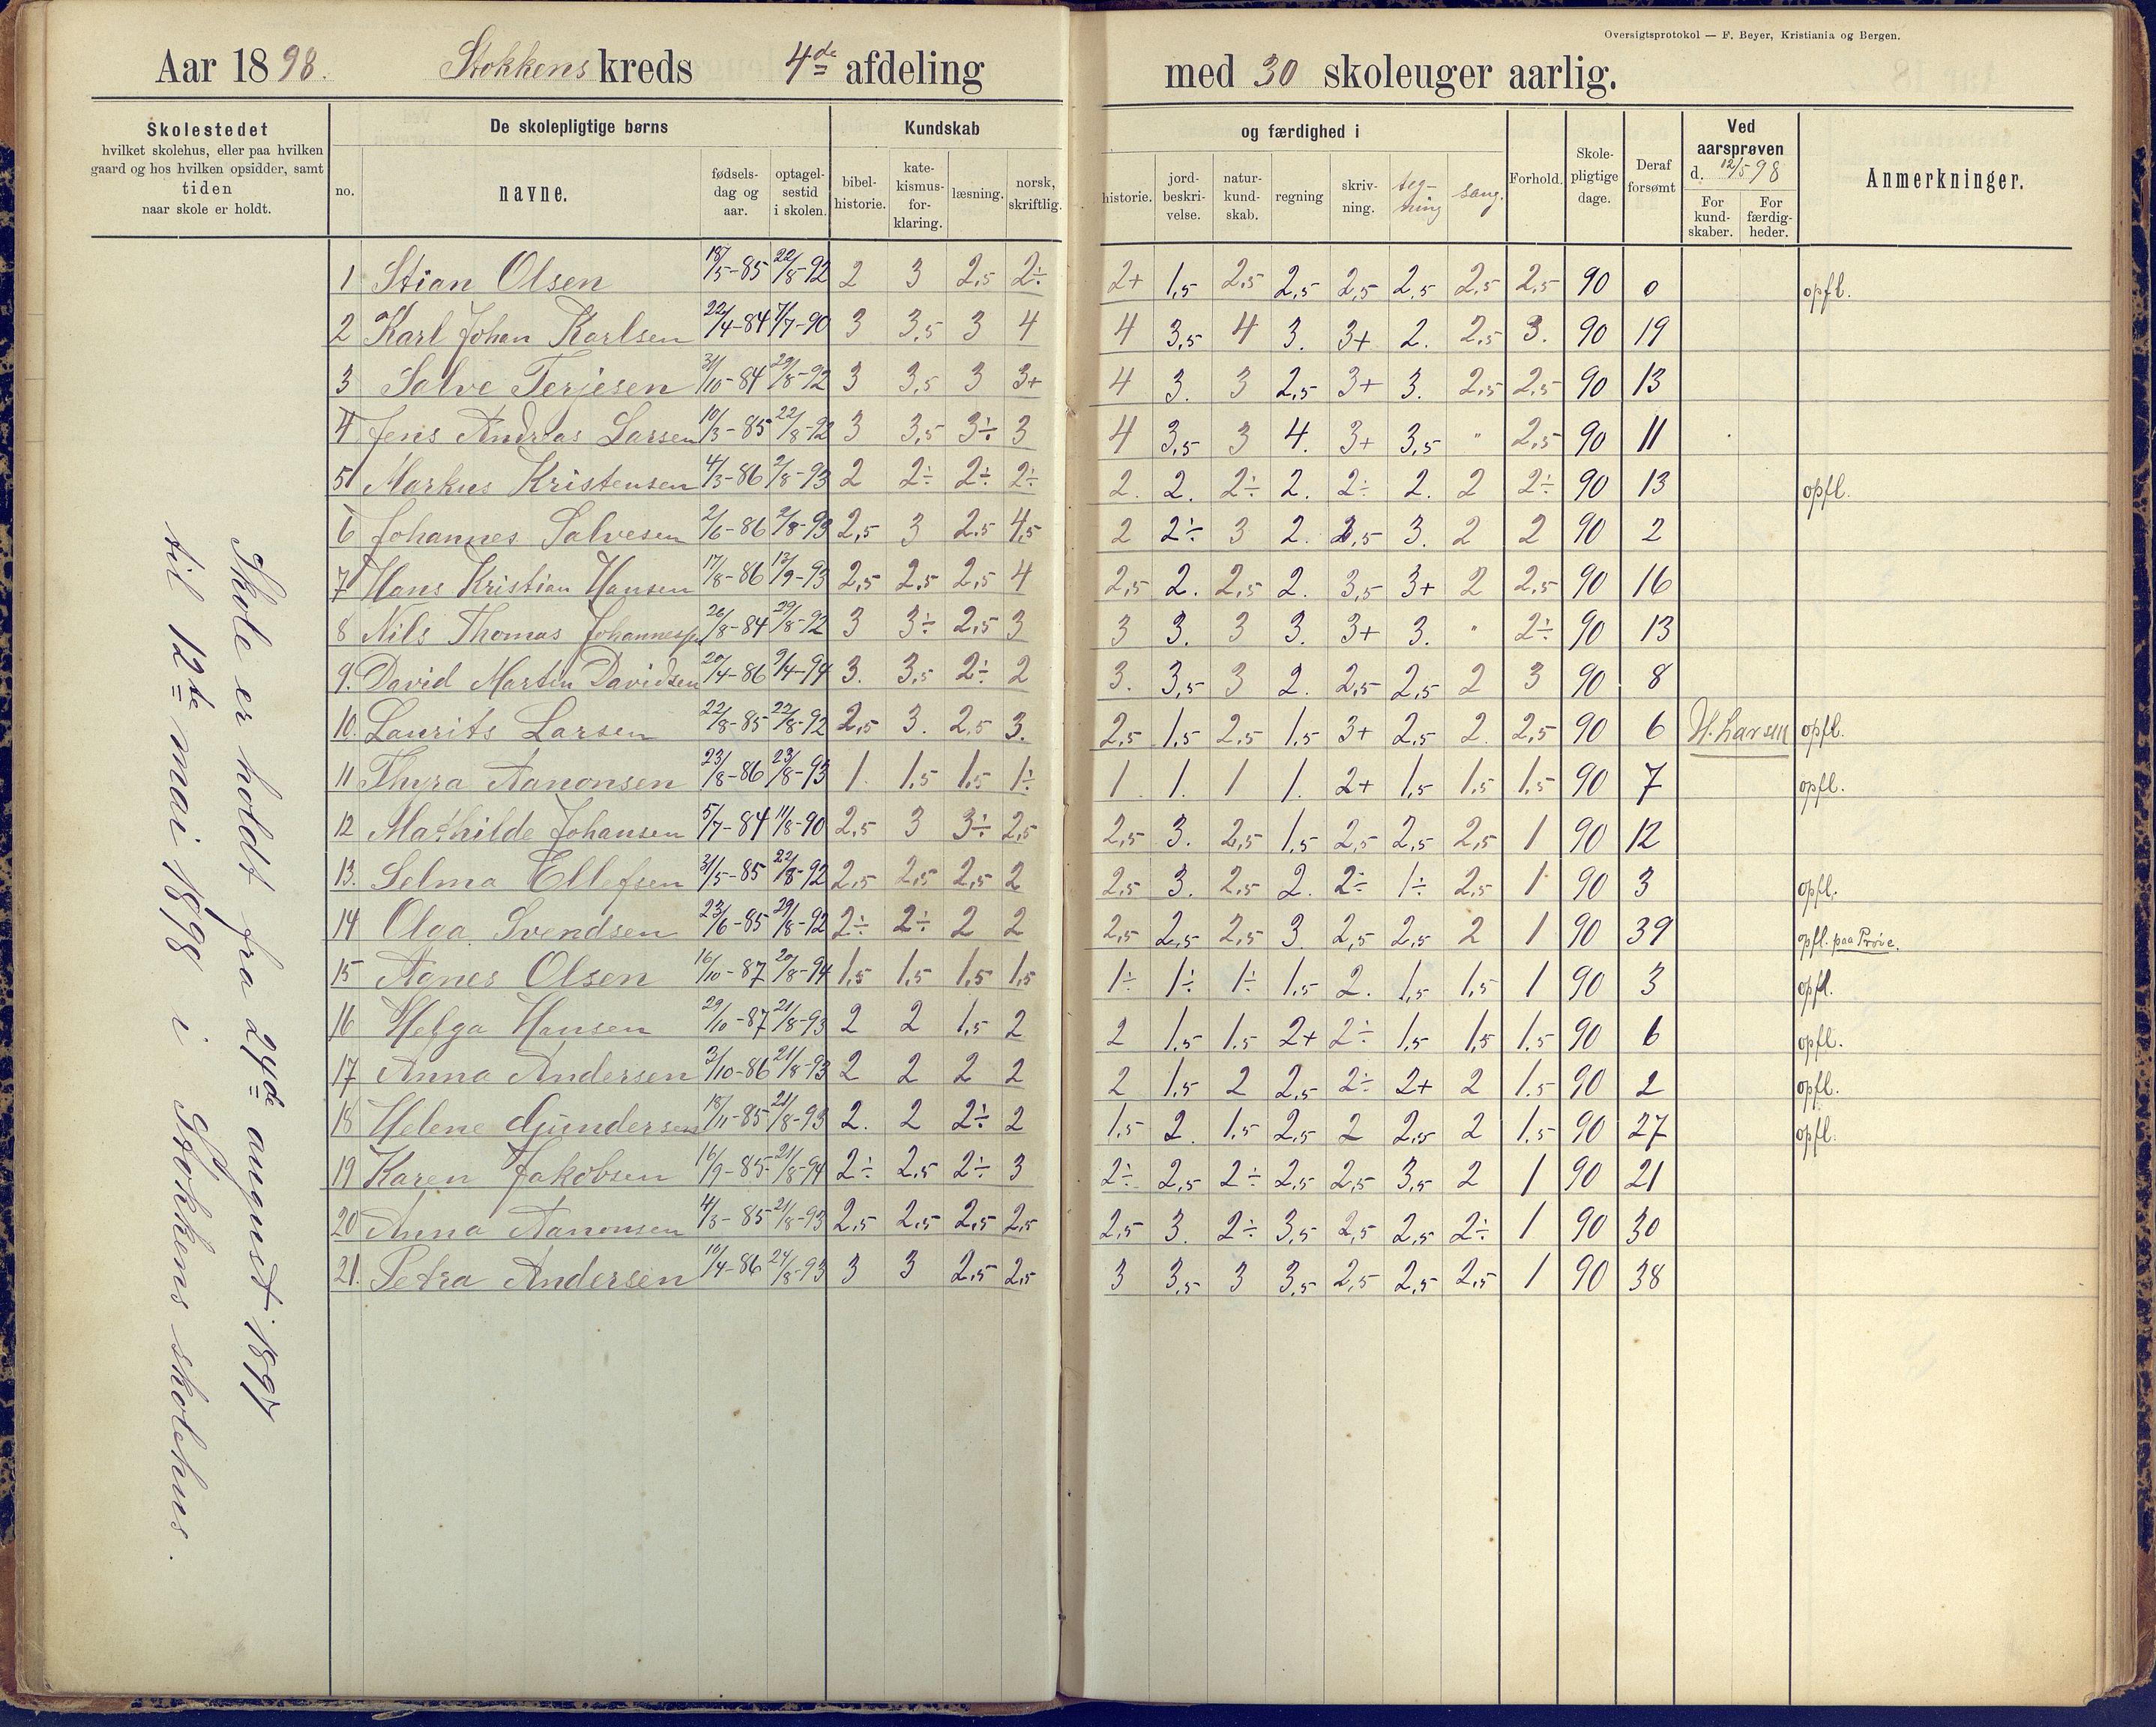 Oversigtsprotokol — F. Beyer, Kristiania og Bergen.
Aar 1898. Stokkens kreds 4de afdeling med 30 skoleuger aarlig.
Skolestedet
hvilket skolehus, eller paa hvilken
gaard og hos hvilken opsidder, samt
tiden
naar skole er holdt.
De skolepligtige børns
no.
navne.
fødsels-
dag og
aar.
optagel-
sestid
i skolen.
Kundskab
bibel-
historie.
kate-
kismus-
for-
klaring.
læsning.
norsk,
skriftlig.
og færdighed i
historie.
jord-
beskri-
velse.
natur-
kund-
skab.
regning
skriv-
ning.
teg-
ning
sang.
Forhold.
Skole-
pligtige
dage.
Deraf
forsømt
Ved
aarsprøven
d. 12/5 98
For
kund-
skaber.
For
færdig-
heder.
Anmerkninger.
Skole er holdt fra 24de august 1897
til 12te mai 1898 i Stokkens skolehus.
1 Stian Olsen 18/5-85 22/8-92 2 3 2,5 2÷ 2+ 1,5 2,5 2,5 2,5 2,5 2,5 2,5 90 0 opfl.
2 Karl Johan Karlsen 22/4-84 7/7-90 3 3,5 3 4 4 3,5 4 3. 3+ 2. 2,5 3. 90 19
3 Salve Terjesen 31/10-84 29/8-92 3 3,5 3 3+ 4 3. 3 2,5 3+ 3. 2,5 2,5 90 13
4 Jens Andreas Larsen 10/3-85 22/8-92 3 3,5 3÷ 3 4 3,5 3 4. 3+ 3,5 " 2,5 90 11
5 Markus Kristensen 4/3-86 2/8-93 2 2÷ 2÷ 2÷ 2. 2. 2÷ 2. 2÷ 2. 2 2÷ 90 13 opfl.
6 Johannes Salvesen 2/6-86 2/8-93 2,5 3 2,5 4,5 2 2÷ 3 2. 2,5 3. 2 2 90 2
7 Hans Kristian Hansen 17/8-86 13/9-93 2,5 2,5 2,5 4 2,5 2. 2,5 2. 3,5 3+ 2 2,5 90 16
8 Nils Thomas Johannessen 26/8-84 29/8-92 3 3÷ 2,5 3 3 3. 3 3. 3+ 3. " 2÷ 90 13
9. David Martin Davidsen 20/4-86 9/4-94 3. 3,5 2÷ 2 3. 3,5 3 2. 2,5 2,5 2 3 90 8
10. Laurits Larsen 22/8-85 22/8-92 2,5 3. 2,5 3. 2,5 1,5 2,5 1,5 3+ 2,5 2. 2,5 90 6 H. Larsen opfl.
11 Thyra Aanonsen 23/8-86 23/8-93 1. 1,5 1,5 1÷ 1 1. 1 1. 2+ 1,5 1,5 1,5 90 7 opfl.
12 Mathilde Johansen 5/7-84 11/8-90 2,5 3 3÷ 2,5 2,5 3. 2,5 1,5 2,5 2,5 2,5 1 90 12
13. Selma Ellefsen 31/5-85 22/8-92 2,5 2,5 2,5 2 2,5 3. 2,5 2. 2÷ 1÷ 2,5 1 90 3 opfl.
14 Olga Svendsen 23/6-85 29/8-92 2÷ 2÷ 2 2 2,5 2,5 2,5 3. 2,5 2,5 2 1 90 39 opfl. paa Prøve.
15 Agnes Olsen 16/10-87 20/8-94 1,5 1,5 1,5 1,5 1÷ 1÷ 1÷ 1,5 2. 1,5 1,5 1 90 3 opfl.
16 Helga Hansen 29/10-87 21/8-93 2 2 1,5 2 2 1,5 1.5 2+ 2÷ 1,5 1,5 1.5 90 6 opfl.
17 Anna Andersen 3/10-86 21/8-93 2 2 2 2 2 1,5 2 2,5 2÷ 2+ 2 1.5 90 2 opfl.
18 Helene Gundersen 18/11-85 21/8-93 2. 2 2÷ 2 1,5 2. 1,5 2,5 2 2,5 2 1,5 90 27 opfl.
19 Karen Jakobsen 16/9-85 21/8-94 2÷ 2,5 2÷ 3 2÷ 2,5 2÷ 2,5 2,5 3,5 2 1 90 21
20 Anna Aanonsen 4/3-85 21/8-93 2,5 2,5 2,5 2,5 2,5 3. 2÷ 3,5 2,5 2,5 2÷ 1 90 30
21. Petra Andersen 10/4-86 24/8-93 3 3 2,5 2,5 3 3,5 3 3,5 2,5 2,5 2,5 1 90 38